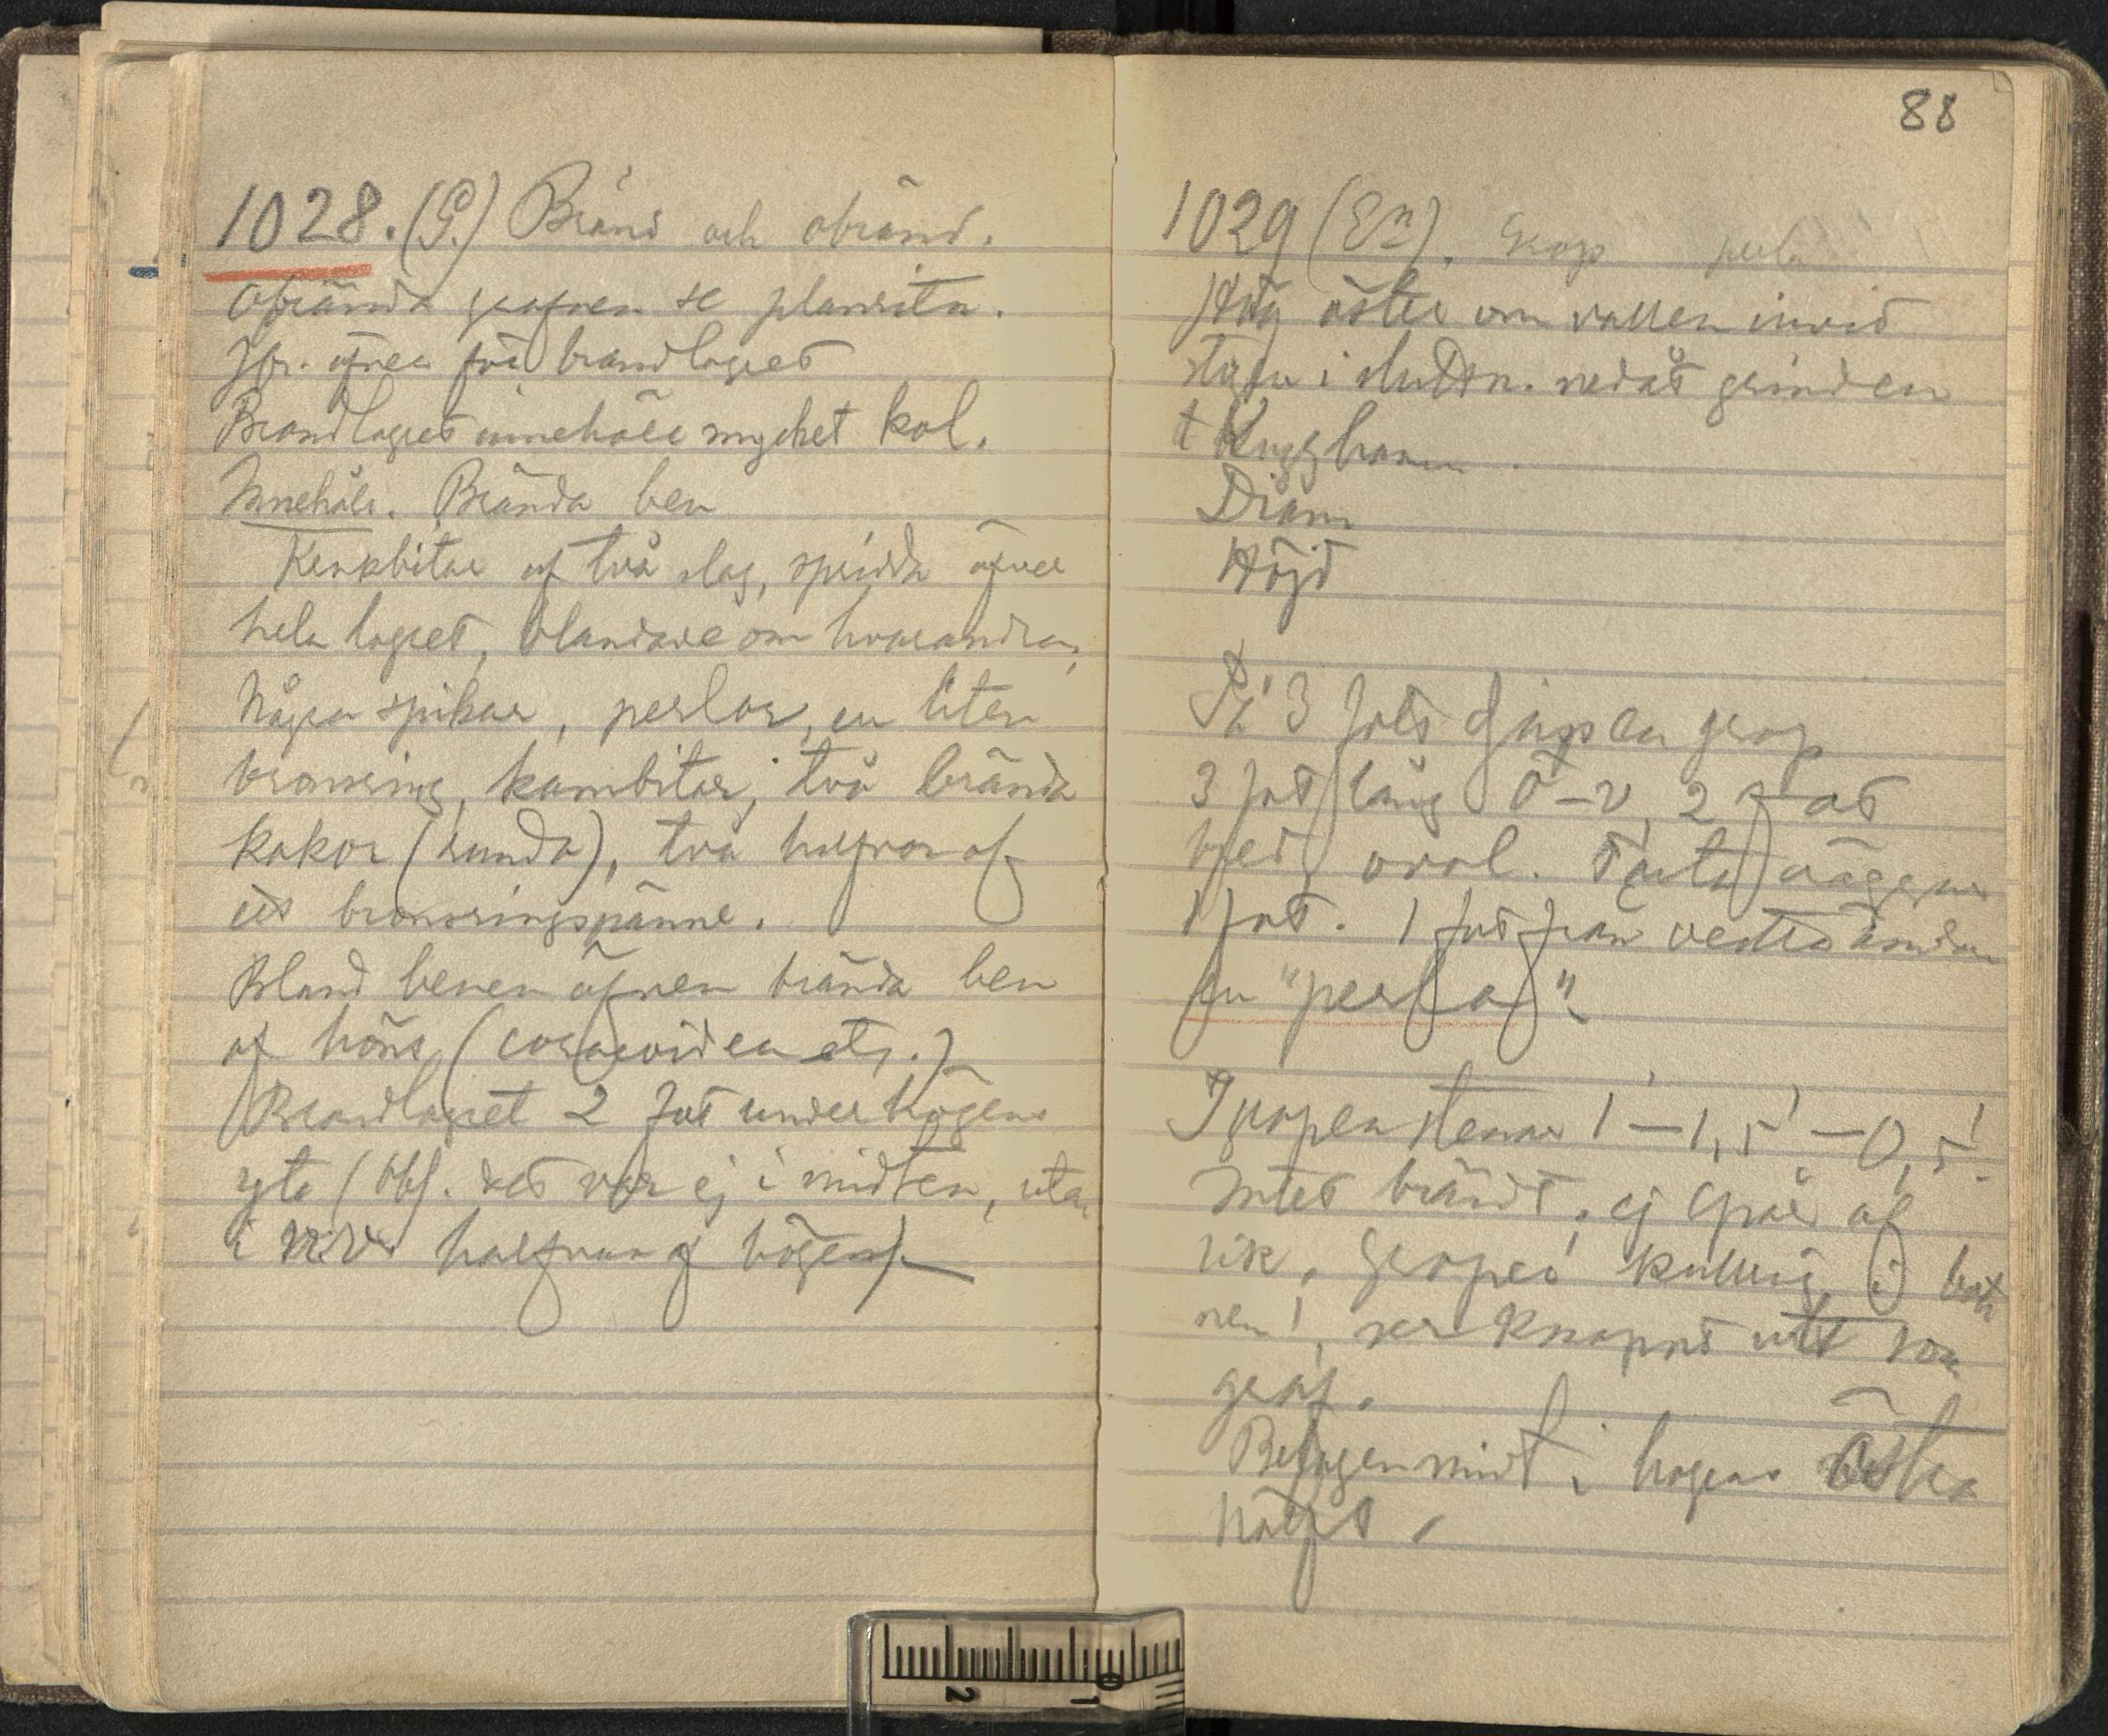 1028. (G.) Bränd och obränd.
Obrända grafven se planritn.
Jfr. äfven för brandlagret
Brandlagret innehöll mycket kol.
Innehåll. Brända ben
Krukbitar af två slag, spridda öfver
hela lagret, blandade om hvarandra,
Några spikar, perlor, en liten
bronsring, kambitar, två brända
kakor (runda), två halfvor af
ett bronsringspänne.
Bland benen äfven brända ben
af höns (coracoiden etc.)
Brandlagret 2 fot under högens
yta (obs. det var ej i midten, utan
i halfvan af högen).
88
1029 (En). Grop perla
Hög öster om vallen invid
stigen i sluttn. nedåt grinden
t Kugghamn.
Diam
Höjd
På 3 fots djup en grop
3 fot lång Ö–V, 2 fot
bred, oval. Tvärta väggar
1 fot. 1 fot från vestra ändan
en "perla"
I gropen stenar 1'–1,5'–0,5'.
Intet brändt, ej spår af
lik, gropen kullrig i bott
nen, ser knappt ut som
graf.
Belägen midt i högens östra
hälft.